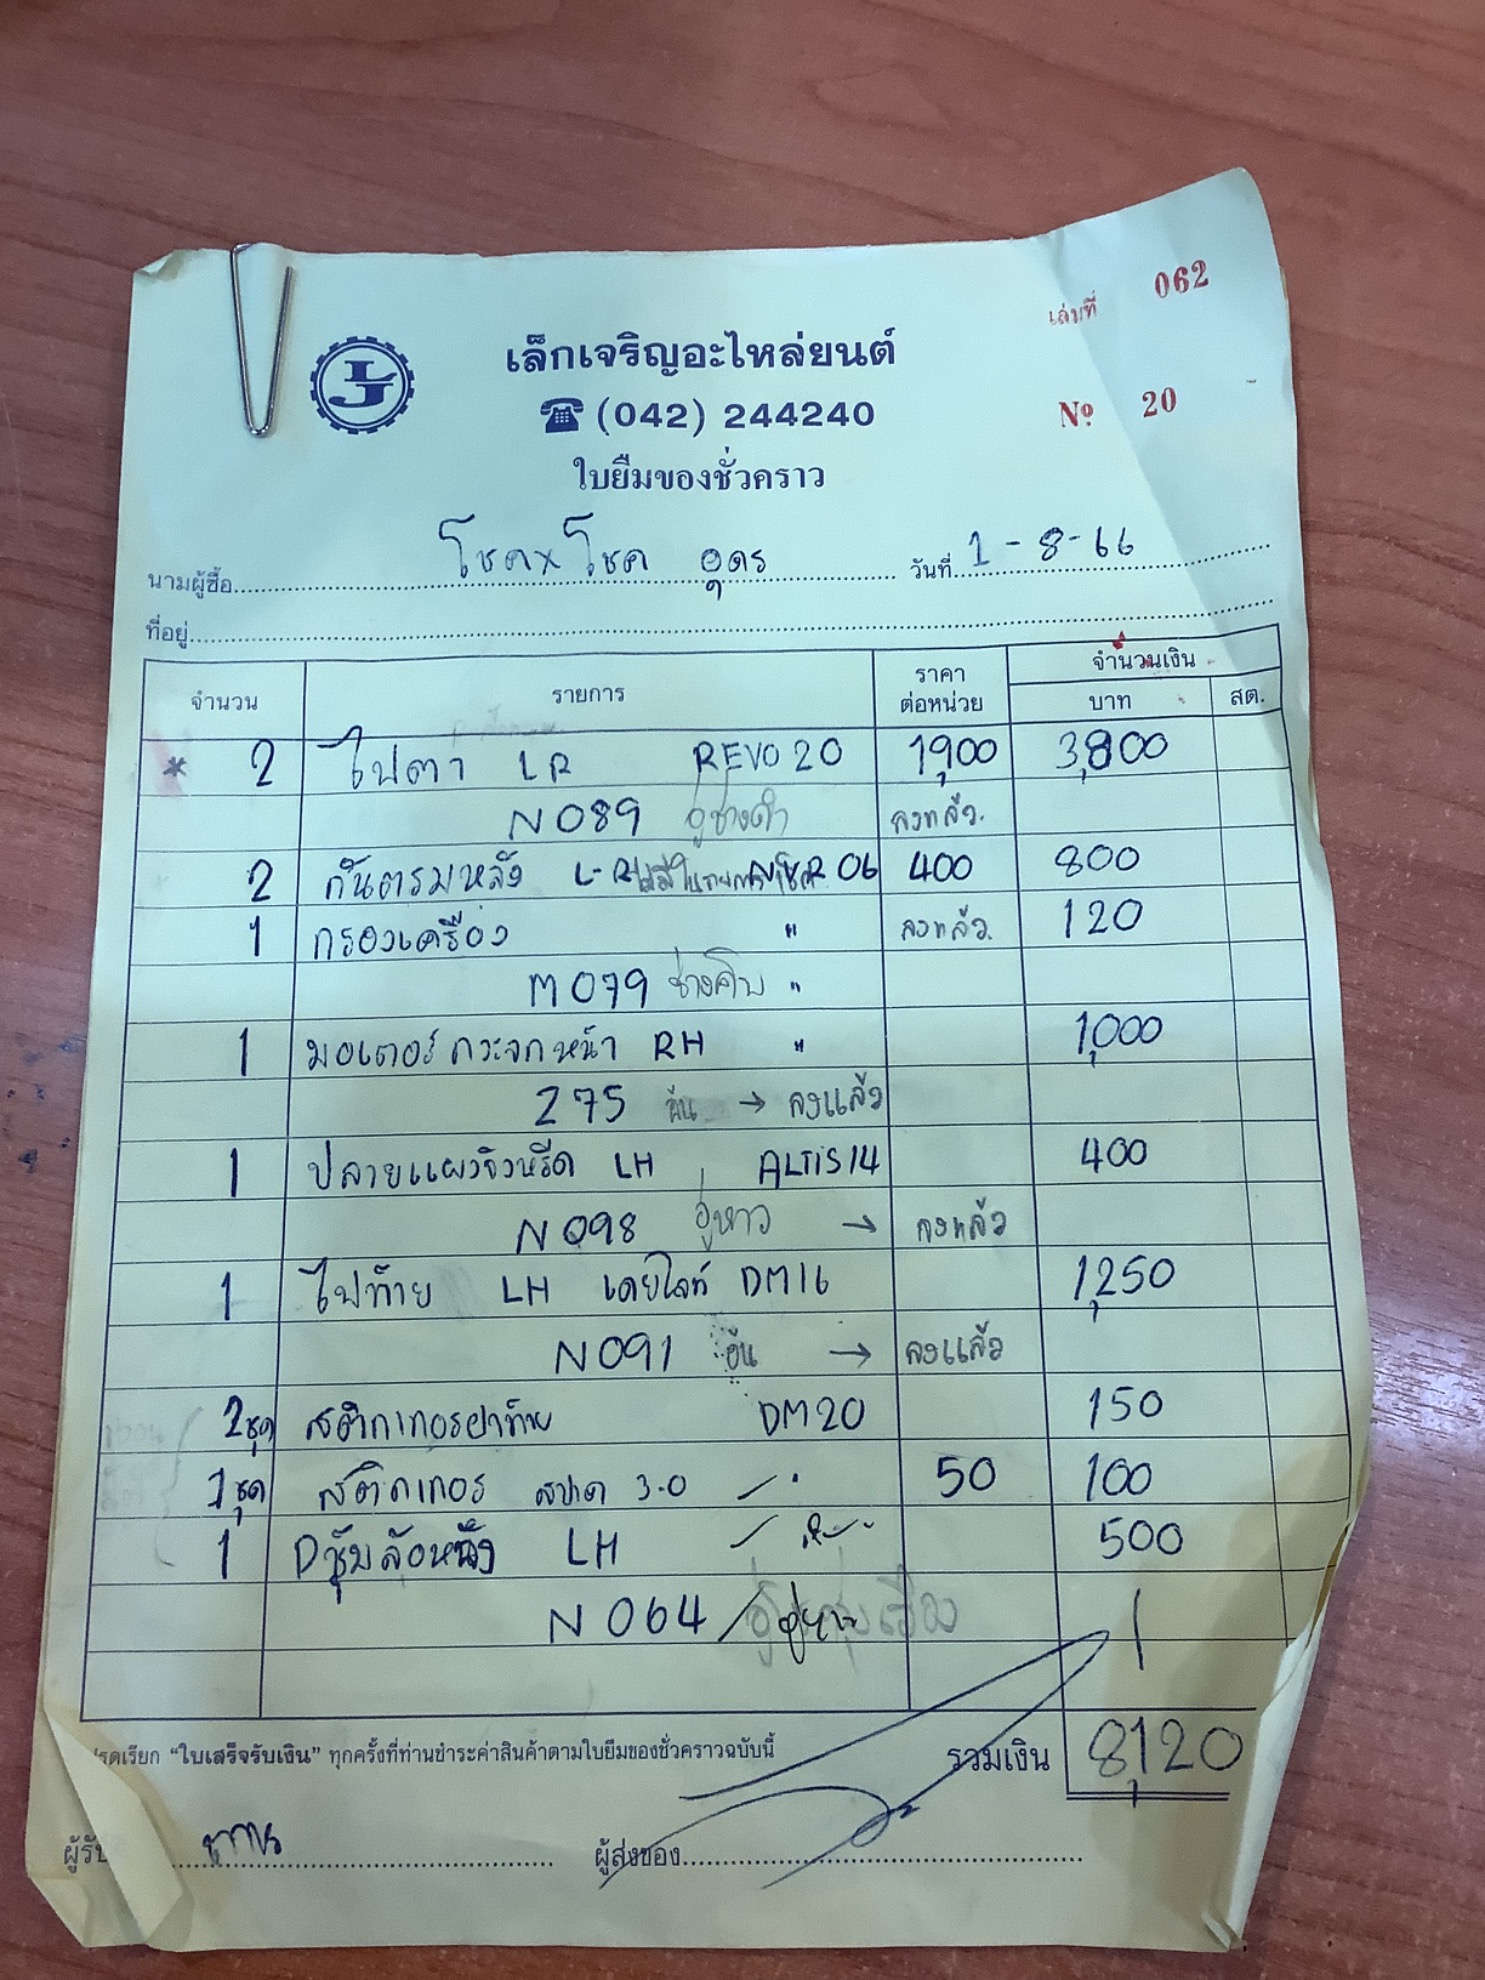 เล่มที่ 062
LJ
เล็กเจริญอะไหล่ยนต์
(042) 244240
Nº 20
ใบยืมของชั่วคราว
นามผู้ซื้อ โชคxโชค อุดร วันที่ 1-8-66
ที่อยู่
จำนวน รายการ ราคาต่อหน่วย จำนวนเงิน
บาท สต.
* 2 ไฟตา LR REVO 20 1,900 3,800
N 089 อู่ช่างดำ ลงแล้ว.
2 กันตรมหลัง L-R 06 400 800
1 กรองเครื่อง " ลงแล้ว. 120
M 079 "
1 มอเตอร์กระจกหน้า RH " 1,000
275 → ลงแล้ว
1 ปลายแผงจิ้งหรีด LH ALTIS 14 400
N 098 อู่หาว → ลงแล้ว
1 ไฟท้าย LH เดย์ไลท์ DM16 1,250
N 091 อั๋น → ลงแล้ว
2 ชุด สติกเกอร์ฝาท้าย DM 20 150
1 ชุด สติกเกอร์ 3.0 50 100
1 ซุ้มล้อหลัง LH 500
N 064
รดเรียก "ใบเสร็จรับเงิน" ทุกครั้งที่ท่านชำระค่าสินค้าตามใบยืมของชั่วคราวฉบับนี้ รวมเงิน 8,120
ผู้รับ ผู้ส่งของ